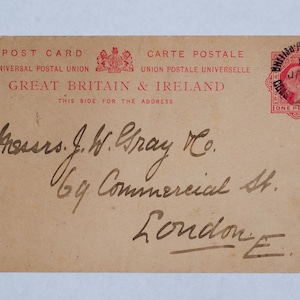 POST CARD CARTE POSTALE
UNIVERSAL POSTAL UNION UNION POSTALE UNIVERSELLE
GREAT BRITAIN & IRELAND
THIS SIDE FOR THE ADDRESS
Messrs. J. W. Gray
69 Commercial St.
London. E.